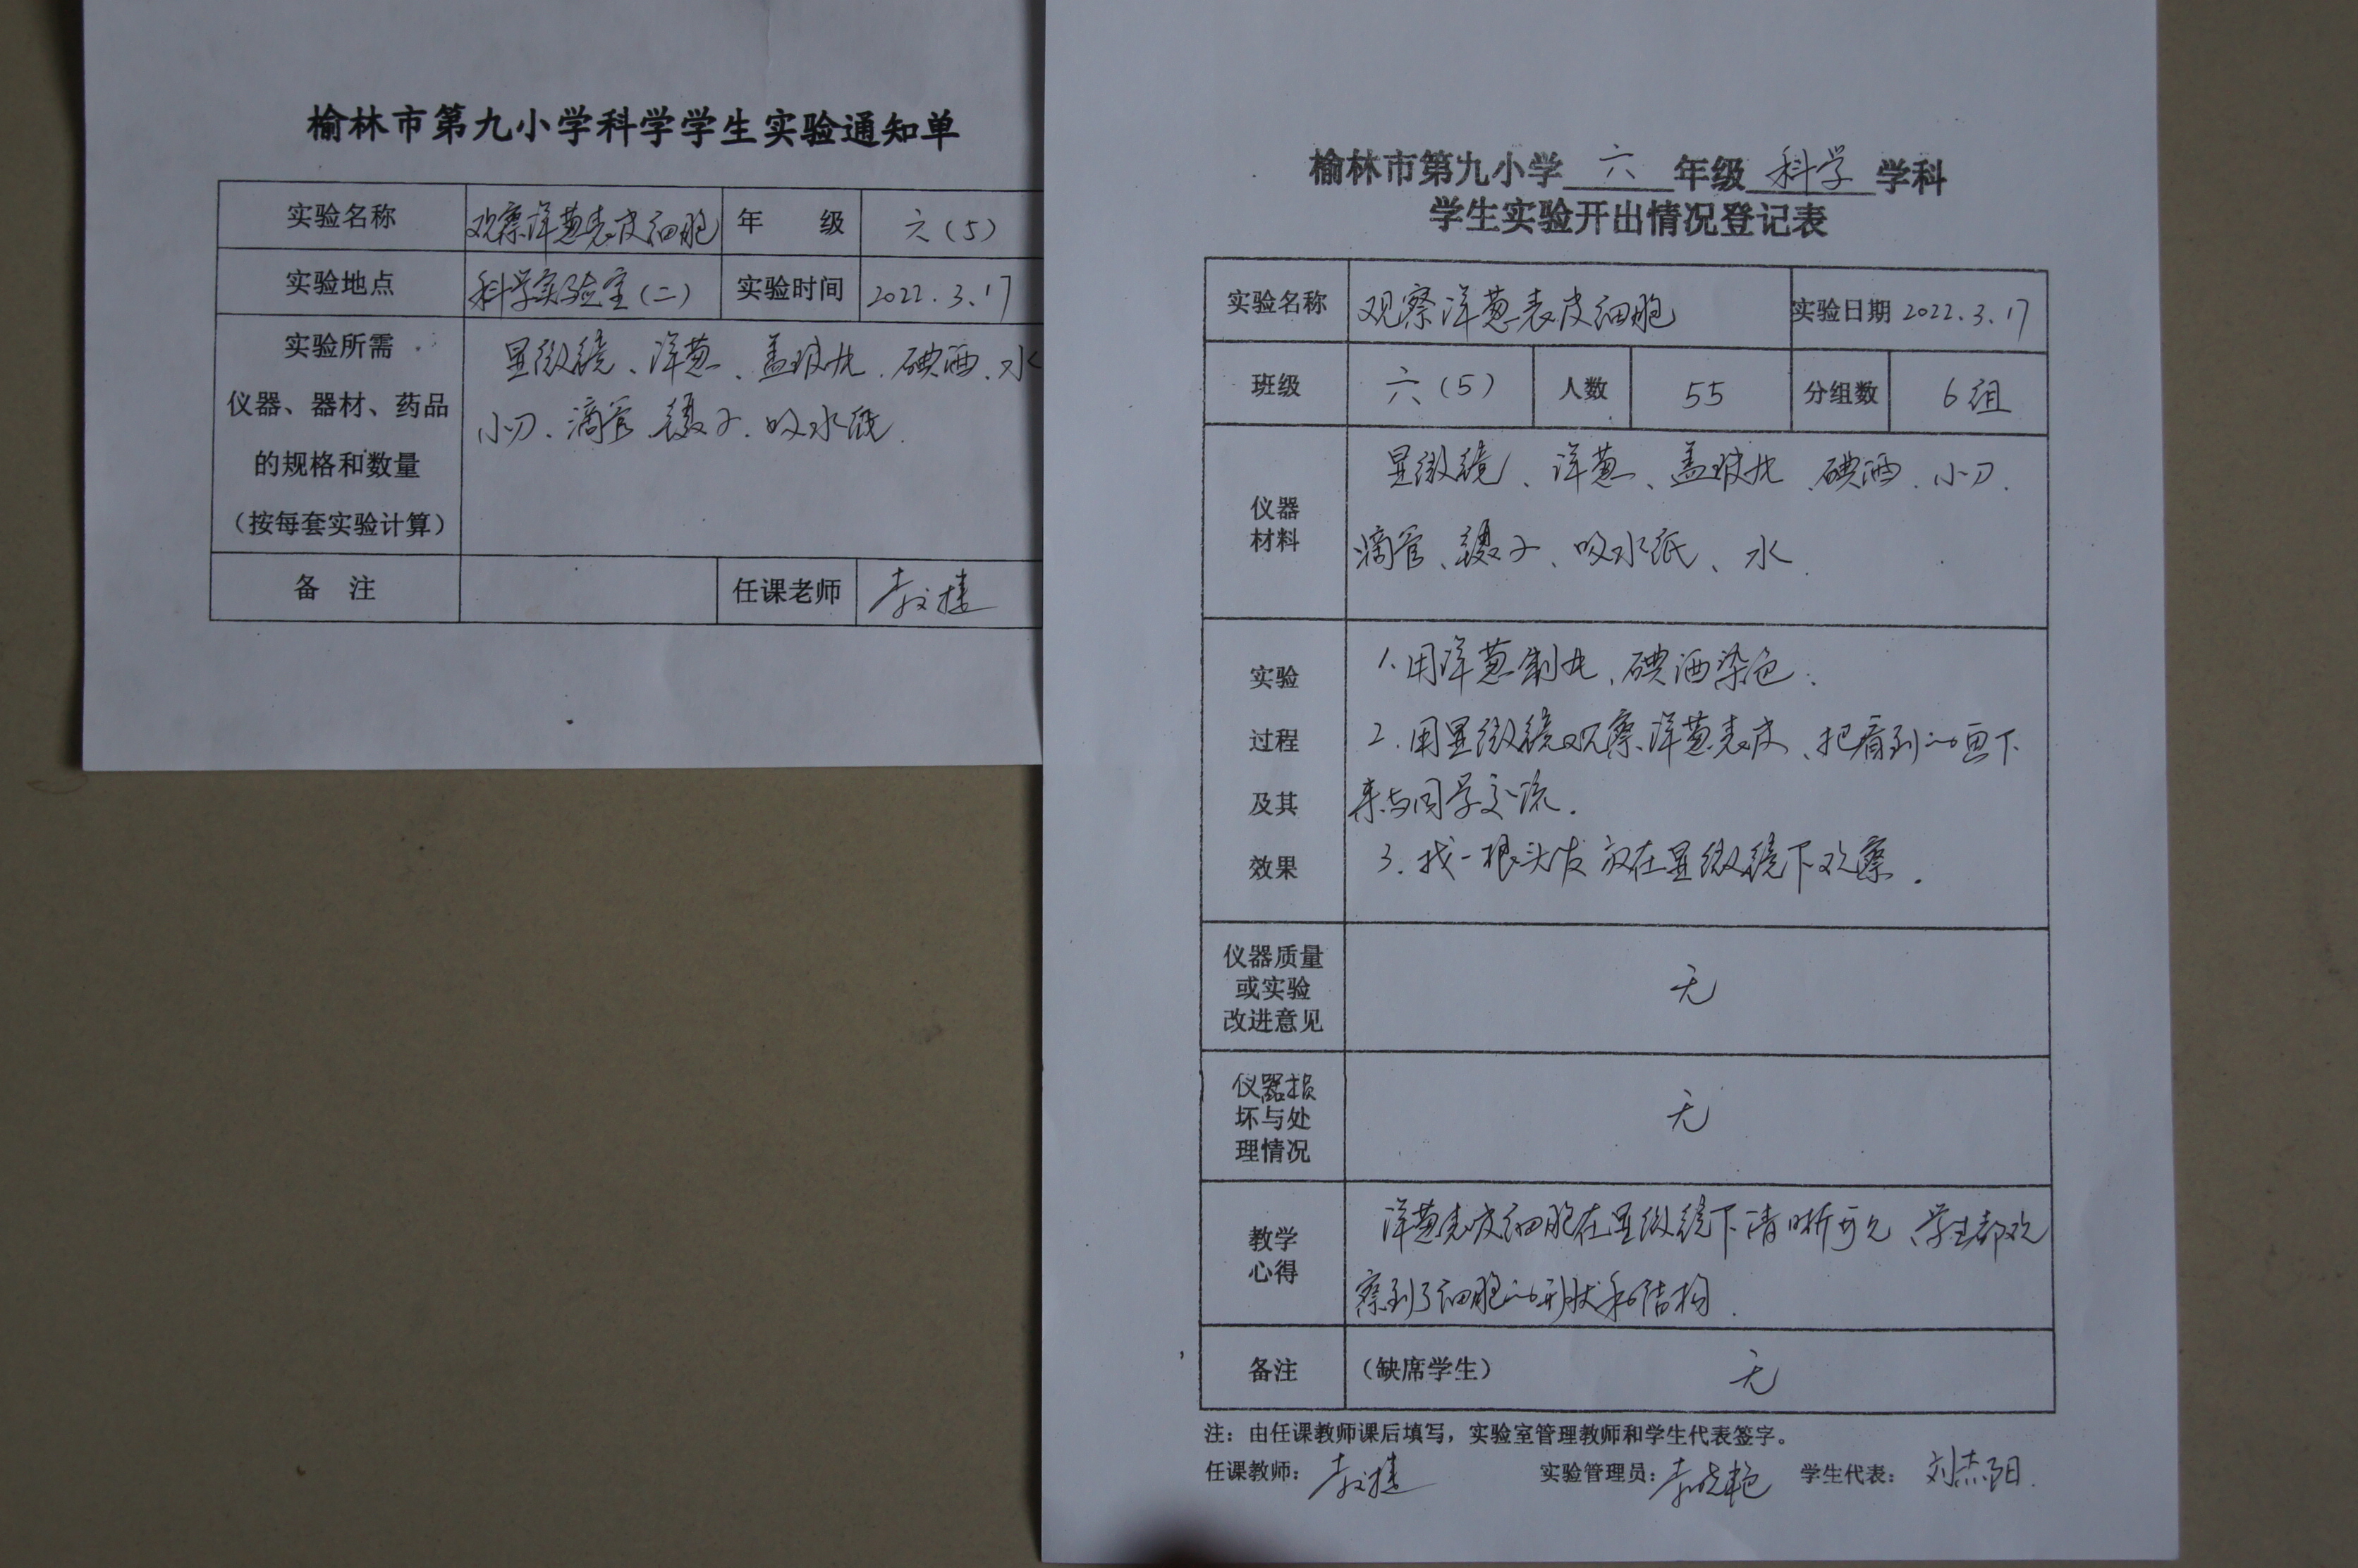 榆林市第九小学科学学生实验通知单
实验名称 观察洋葱表皮细胞 年 级 六(5)
实验地点 科学实验室(二) 实验时间 2022.3.17
实验所需
仪器、器材、药品
的规格和数量
(按每套实验计算)
显微镜、洋葱、盖玻片、碘酒、水
小刀、滴管、镊子、吸水纸.
备 注 任课老师
榆林市第九小学 六 年级 科学 学科
学生实验开出情况登记表
实验名称 观察洋葱表皮细胞 实验日期 2022.3.17
班级 六(5) 人数 55 分组数 6组
仪器
材料
显微镜、洋葱、盖玻片、碘酒、小刀、
滴管、镊子、吸水纸、水.
实验
过程
及其
效果
1.用洋葱制片、碘酒染色.
2.用显微镜观察洋葱表皮、把看到的画下
来与同学交流.
3.找一根头发放在显微镜下观察.
仪器质量
或实验
改进意见
无
仪器损
坏与处
理情况
无
教学
心得
洋葱表皮细胞在显微镜下清晰可见、学生都观
察到了细胞的形状和结构.
备注 (缺席学生) 无
注:由任课教师课后填写,实验室管理教师和学生代表签字。
任课教师: 实验管理员: 学生代表: 刘杰阳.